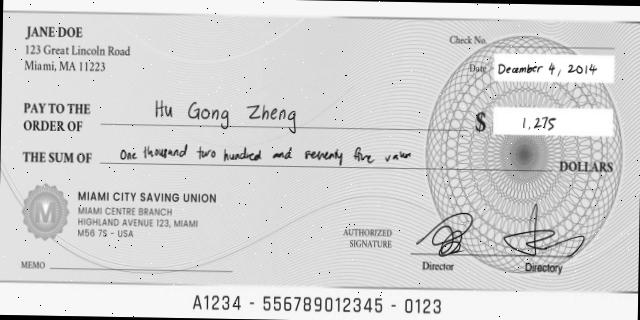 JANE DOE
Check No.
123 Great Lincoln Road
Miami, MA 11223
Date December 4, 2014
PAY TO THE
ORDER OF Hu Gong Zheng
$ 1,275
THE SUM OF One thousand two hundred and seventy five
DOLLARS
MIAMI CITY SAVING UNION
MIAMI CENTRE BRANCH
HIGHLAND AVENUE 123, MIAMI
M56 7S - USA
M
AUTHORIZED
SIGNATURE
Director
Directory
MEMO
A1234 - 556789012345 - 0123